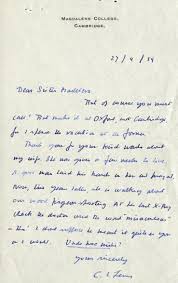 MAGDALENE COLLEGE,
CAMBRIDGE.
27/4/59
Dear Sister Madeleva
That of course you must
call! But make it at Oxford, not Cambridge,
for I spend the vacation at the former.
Thank you for your kind words about
my wife. She was given a few weeks to live.
A good man laid his hands on her and prayed.
Now, two years later, she is walking about
our wood pigeon-shooting. At her last X-Ray
check the doctor used the word 'miraculous'
tho' I don't suppose he meant it quite as you
or I would.
Yours sincerely
C. S. Lewis